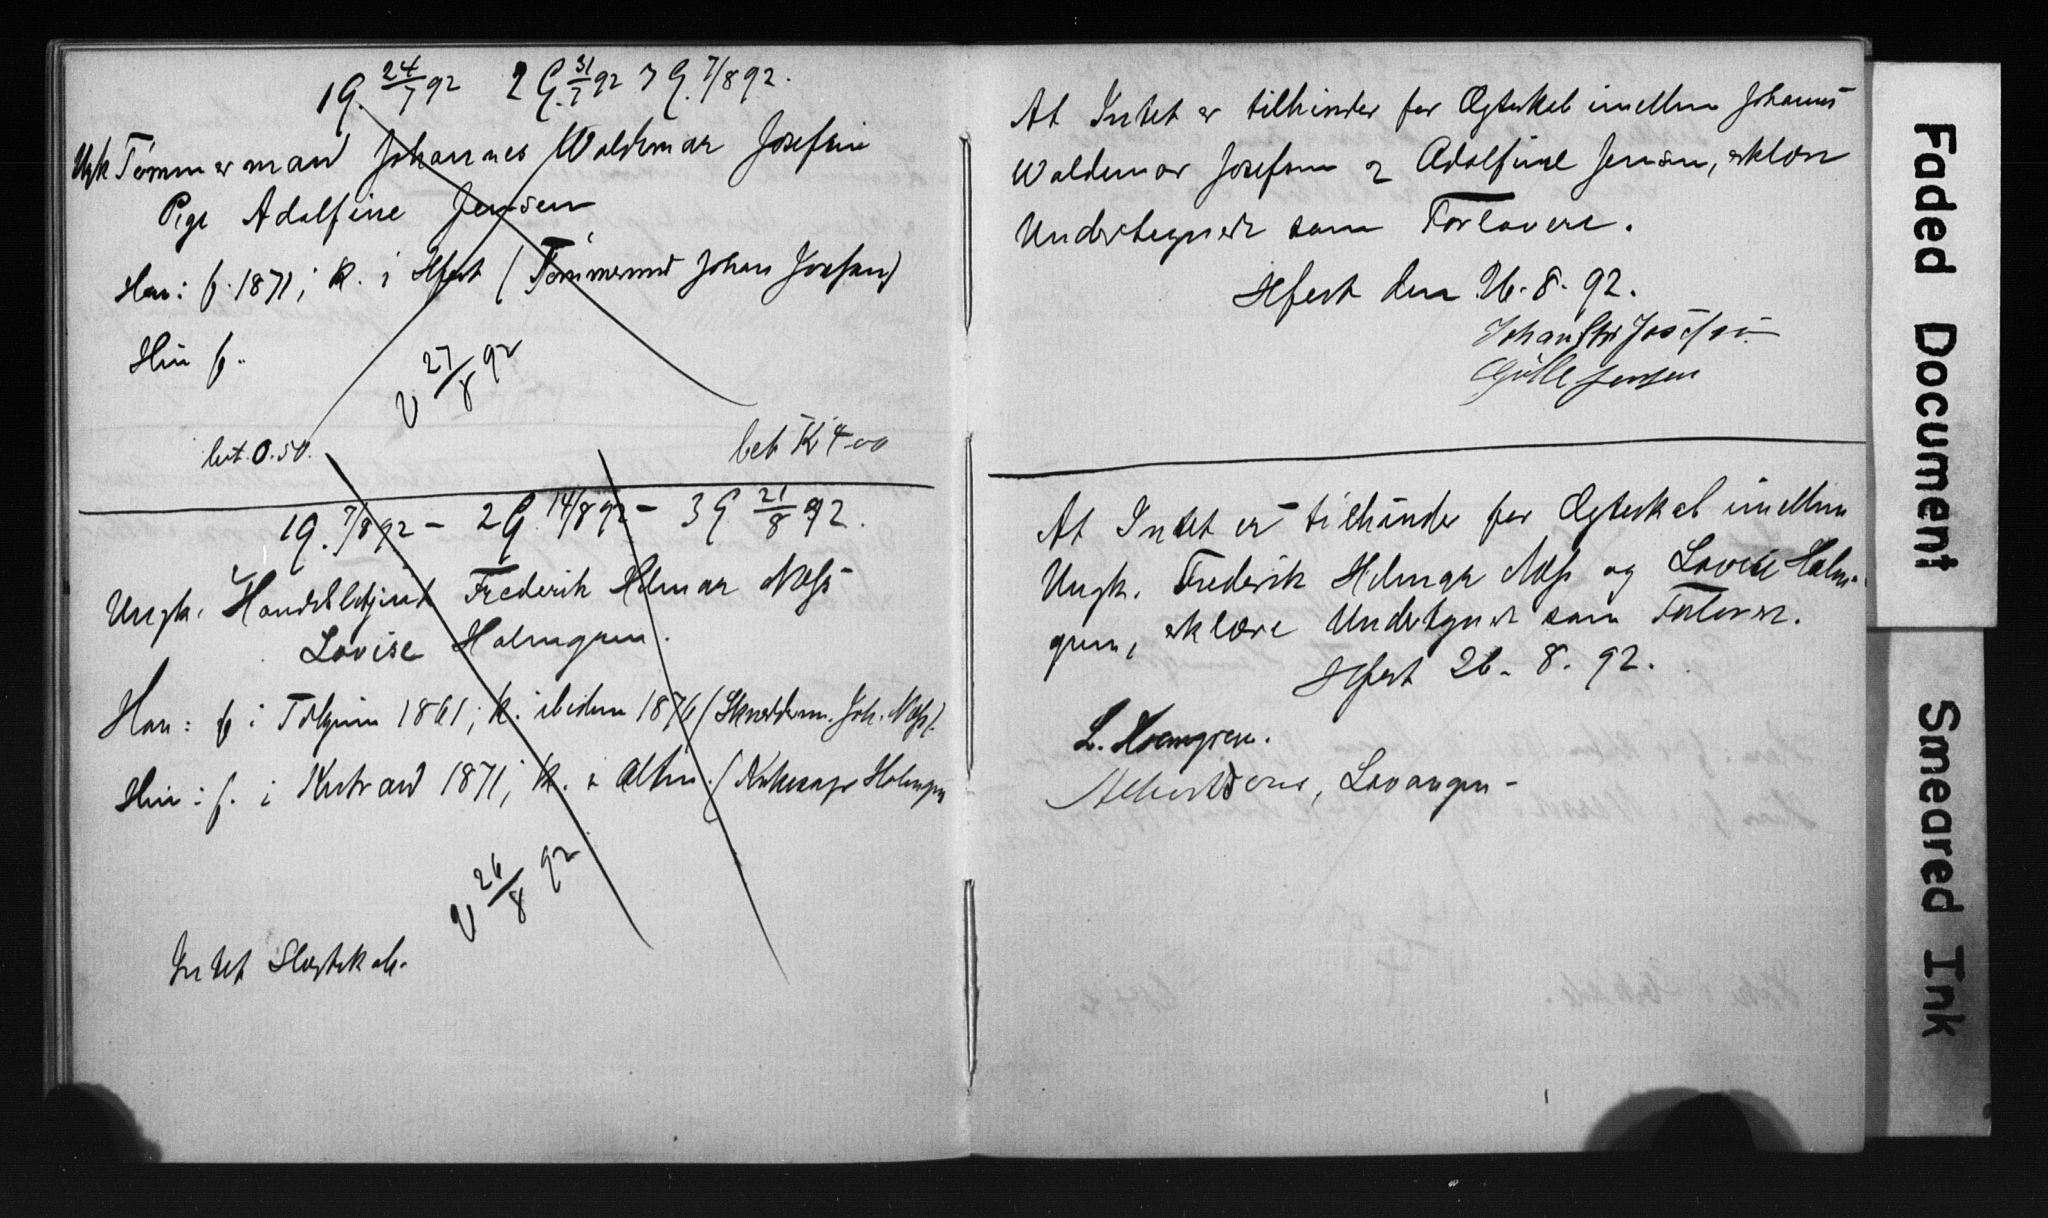 1 G. 24/7 92 2 G. 31/7 92 3 G. 7/8 92.
Ungk Tømmermand Johannes Waldemar Josefsen
Pige Adolfine Jensen
Han: f. 1871; k. i Hfest (Tømmermd Johan Josefsen)
Hun f.
V 27/8 92
bet. 0.50.
bet Kr 4-00
1 G. 7/8 92 - 2 G. 14/8 92 - 3 G 21/8 92.
Ungk. Handelsbetjent Frederik Hilmar Næss
Lovise Holmgren.
Han: f i 1861; k. ibidem 1876 (Skredderm. Joh. Næss).
Hun: f. i 1871; k. i Alten. (Holmgren
V 26/8 92
Intet Slægtskab.
At Intet er tilhinder for Ægteskab imellem Johannes
Waldemar Josefsen og Adolfine Jensen, erklære
Undertegnede som Forlovere.
Hfest den 26.8.92.
Johan Josefsen
Jensen
At Intet er tilhinder for Ægteskab imellem
Ungk. Frederik Hilmar Næss og Lovise Holm-
gren, erklære Undertegnede som Forlovere.
Hfest 26. 8. 92.
L. Holmgren.
Albertsens, Lavangen -
Faded Document
Smeared Ink